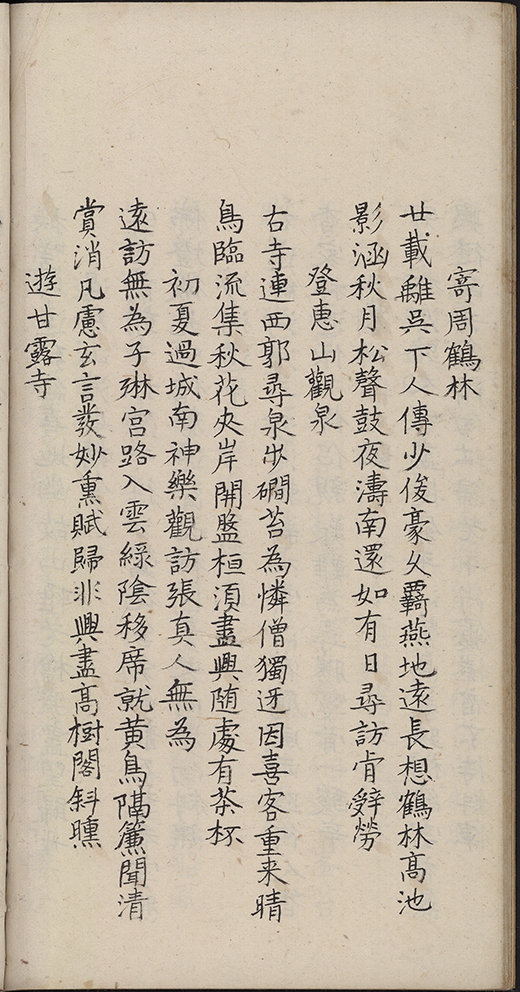 寄周鶴林
廿載離吳下人傳少俊豪久羈燕地遠長想鶴林高池
影涵秋月松聲鼓夜濤南還如有日尋訪肯辭勞
登惠山觀泉
古寺連西郭尋泉步磵苔為憐僧獨迓因喜客重来晴
鳥臨流集秋花夾岸開盤桓須盡興随處有茶杯
初夏過城南神樂觀訪張真人無為
遠訪無為子琳宮路入雲綠陰移席就黄鳥隔簾聞清
賞消凡慮玄言發妙熏賦歸非興盡高樹閣斜曛
遊甘露寺